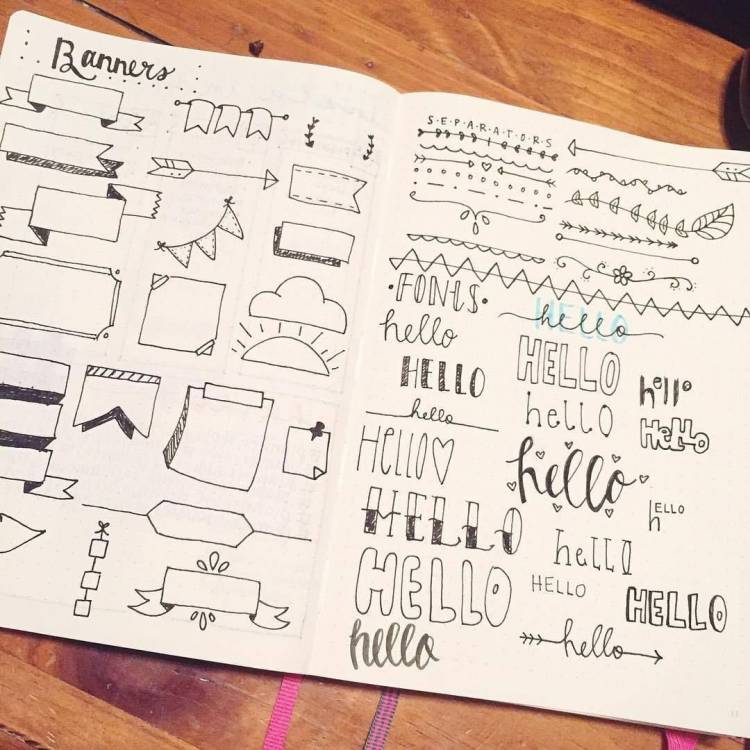 Banners
S·E·P·A·R·A·T·O·R·S
·FONTS·
hello
HELLO
hello
Hello♡
HELLO
HELLO
hello
HELLO
hello
HELLO
hello
hello
hello
HELLO
hello
hello
HeLLO
hELLO
HELLO